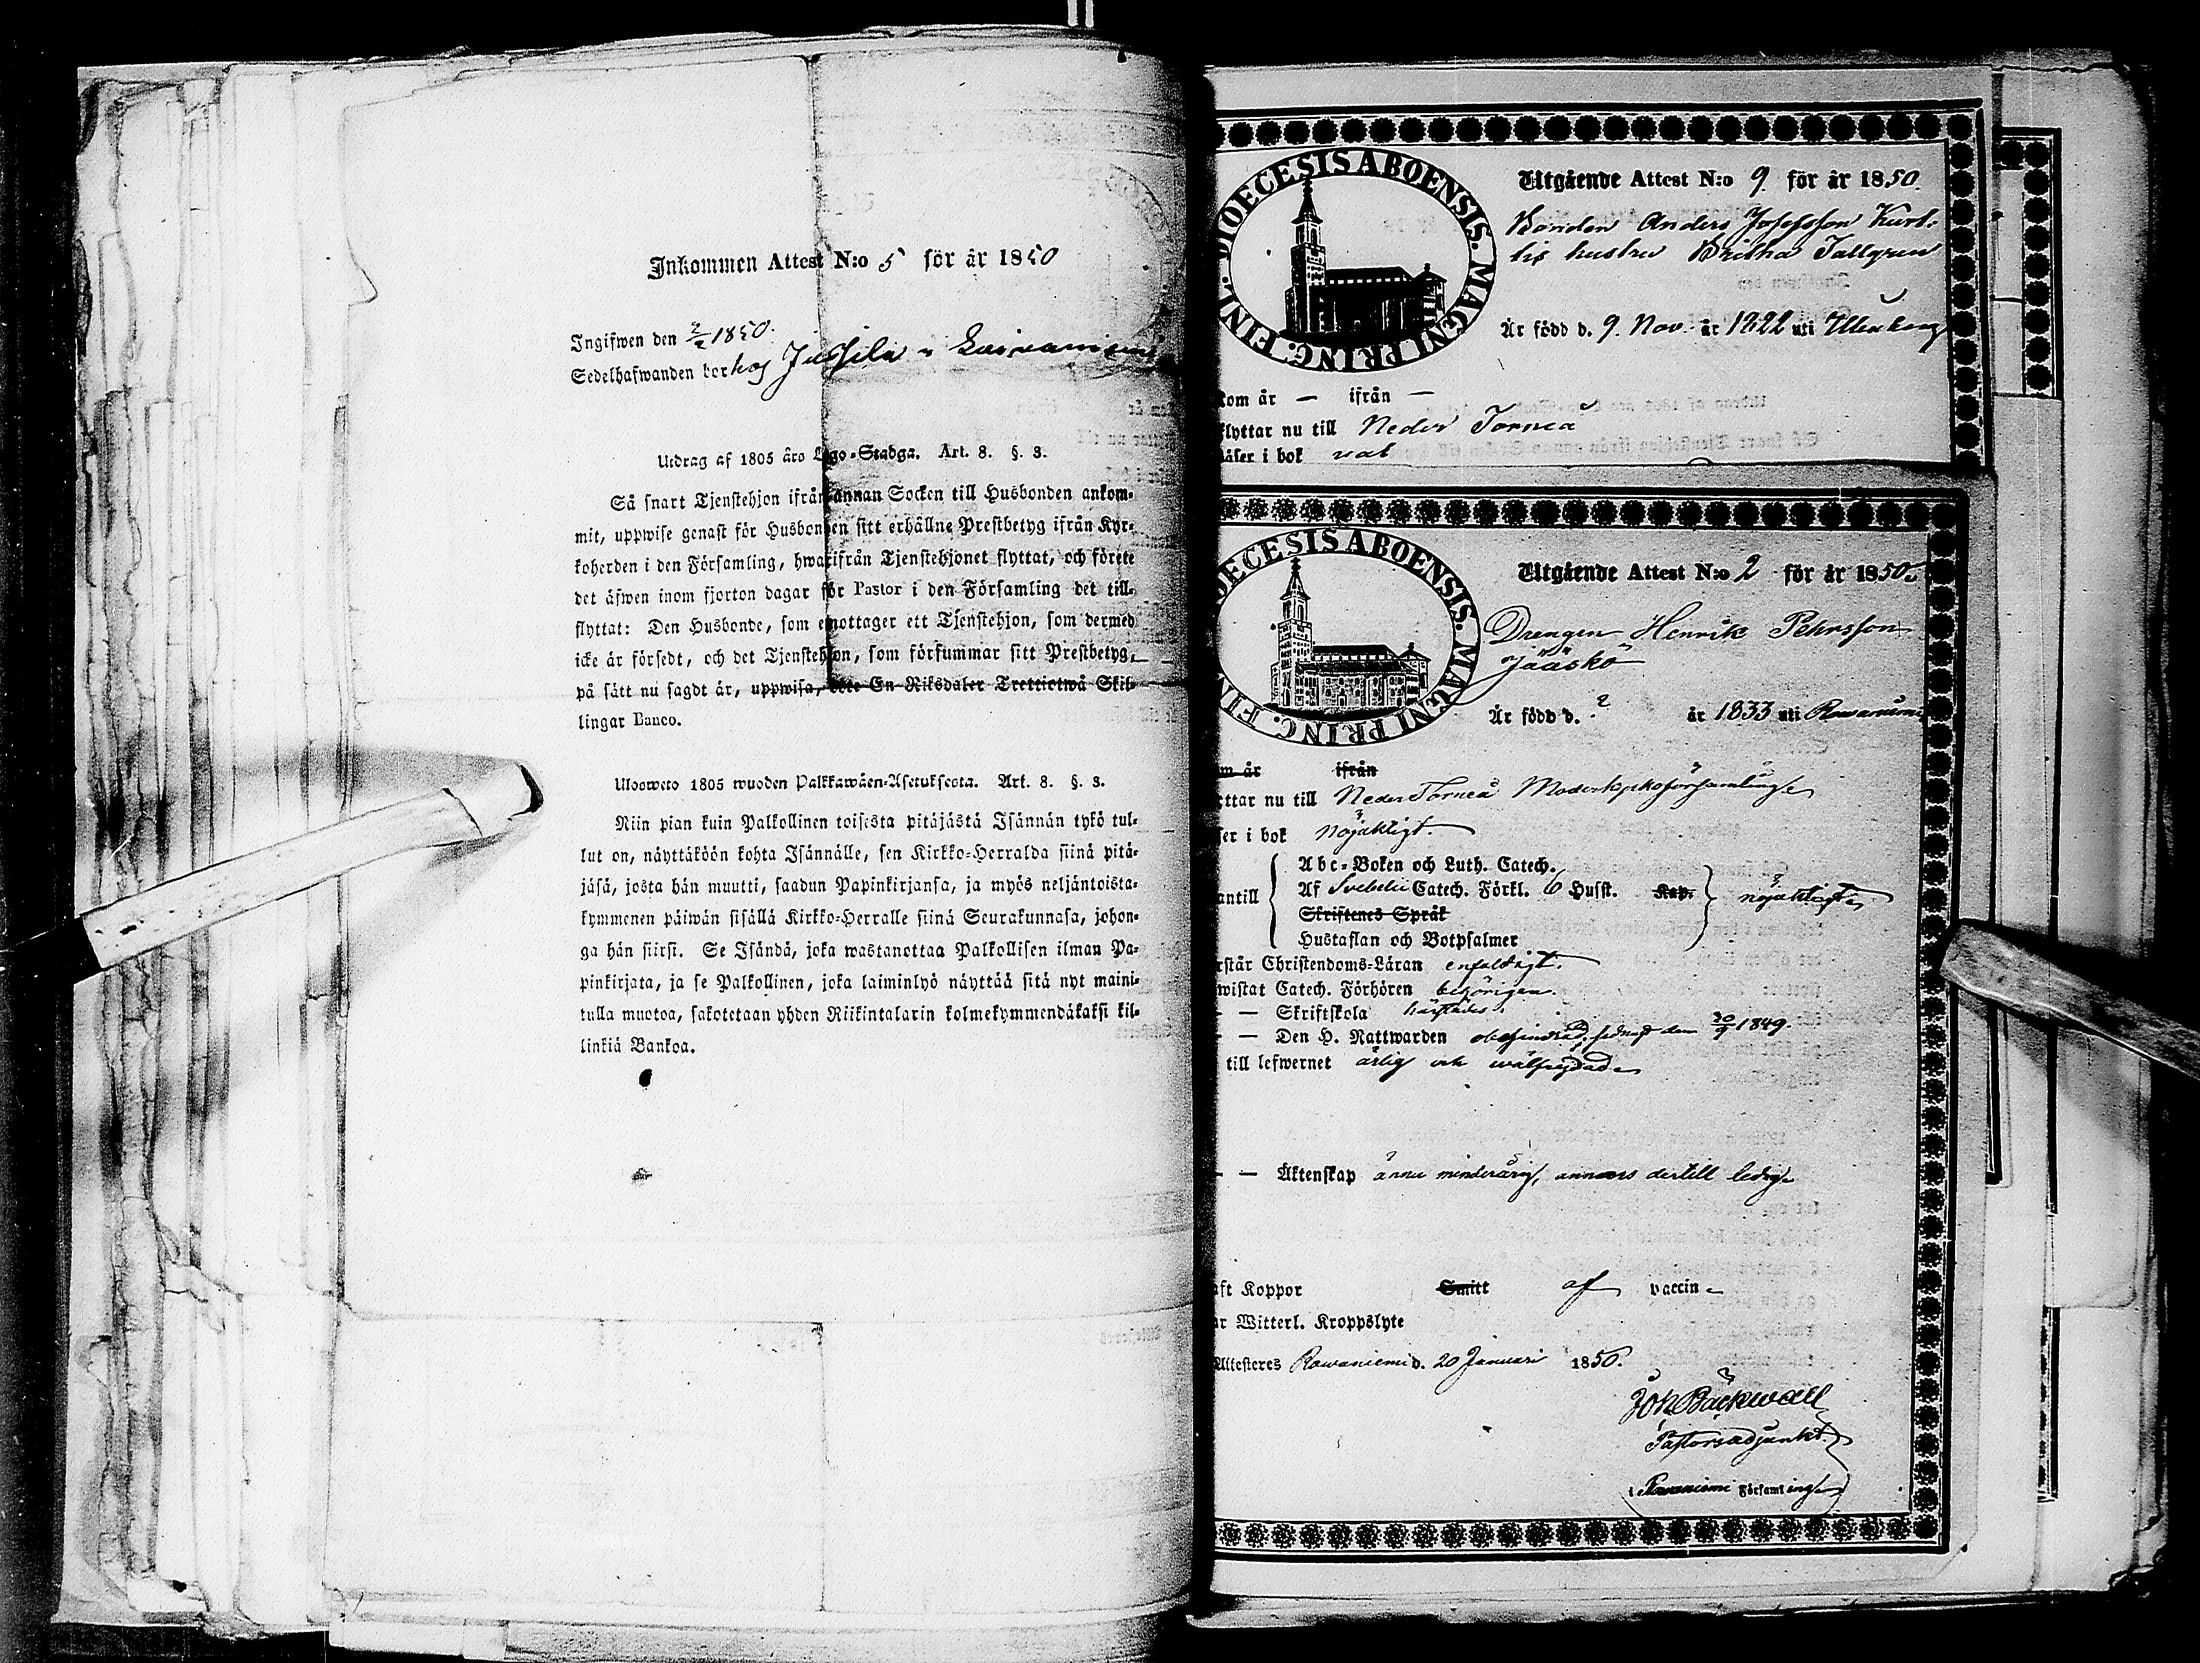 Inkommen Attest N:o 5 för år 1850
Ingifwen den 2/2 1850.
Sedelhafwanden bor hos Jussila
Utdrag af 1805 års Lego-Stadga. Art. 8. §. 3.
Så snart Tjenstehjon ifrån annan Socken till Husbonden ankom-
mit, uppwise genast för Husbonden sitt erhållne Prestbetyg ifrån Kyr-
koherden i den Församling, hwarifrån Tjenstehjonet flyttat, och förete
det äfwen inom fjorton dagar för Pastor i den Församling det till-
flyttat: Den Husbonde, som emottager ett Tjenstehjon, som dermed
icke är försedt, och det Tjenstehjon, som försummar sitt Prestbetyg,
på sätt nu sagdt är, uppwisa, böte En Riksdaler Trettiotwå Skil-
lingar Banco.
Ulosweto 1805 wuoden Palkkawäen-Asetuksesta. Art. 8. §. 3.
Niin pian kuin Palkollinen toisesta pitäjästä Isännän tykö tul-
lut on, näyttäköön kohta Isännälle, sen Kirkko-Herralda siinä pitä-
jäsä, josta hän muutti, saadun Papinkirjansa, ja myös neljäntoista-
kymmenen päiwän sisällä Kirkko-Herralle siinä Seurakunnasa, johon-
ga hän siirsi. Se Isändä, joka wastanottaa Palkollisen ilman Pa-
pinkirjata, ja se Palkollinen, joka laiminlyö näyttää sitä nyt maini-
tulla muotoa, sakotetaan yhden Riikintalarin kolmekymmendäkaksi kil-
linkiä Bankoa.
DIOECESIS ABOENSIS. MAGNI PRINC. FINL.
Utgående Attest N:o 9 för år 1850.
Bonden Anders Josefsson
hustru Britha Tallgren
Är född d. 9. Nov. år 1822 uti
kom år — ifrån —
flyttar nu till Neder Torneå
läser i bok wäl
DIOECESIS ABOENSIS. MAGNI PRINC. FIN
Utgående Attest N:o 2 för år 1850.
Drengen Henrik Pehrsson
Jääskö
Är född d. ? år 1833 uti Rowaniemi
om år ifrån
yttar nu till Neder Torneå Moderkyrkoförsamling
ser i bok nöjaktigt.
Abc-Boken och Luth. Catech.
antill Af Svebelii Catech. Förkl. 6 Husst. Kap. nöjaktigt
Skriftenes Språk
Hustaflan och Botpsalmer
rstår Christendoms-Läran enfaldigt.
wistat Catech. Förhören behörigen.
— Skriftskola härstädes.
— Den H. Nattwarden obehindrad, sednast den 30/9 1849.
till lefwernet ärlig och wälfrejdad
— Äktenskap ännu minderårig, annars dertill ledig
aft Koppor Smitt af vaccin
ar Witterl. Kroppslyte
Attesteres Rowaniemi d. 20 Januari 1850.
Joh Bäckwall
Pastorsadjunkt
i Rowaniemi Församling